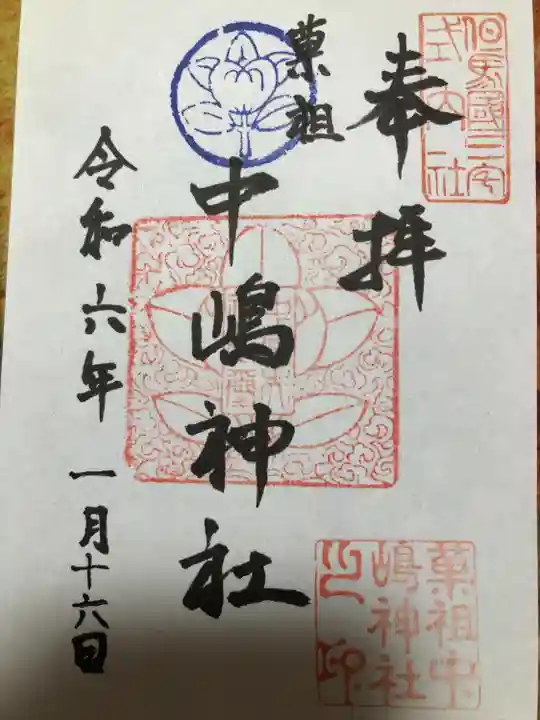 奉拝
菓祖
中嶋神社
令和六年一月十六日
但馬國二字
式内社
菓祖中
嶋神社
之印